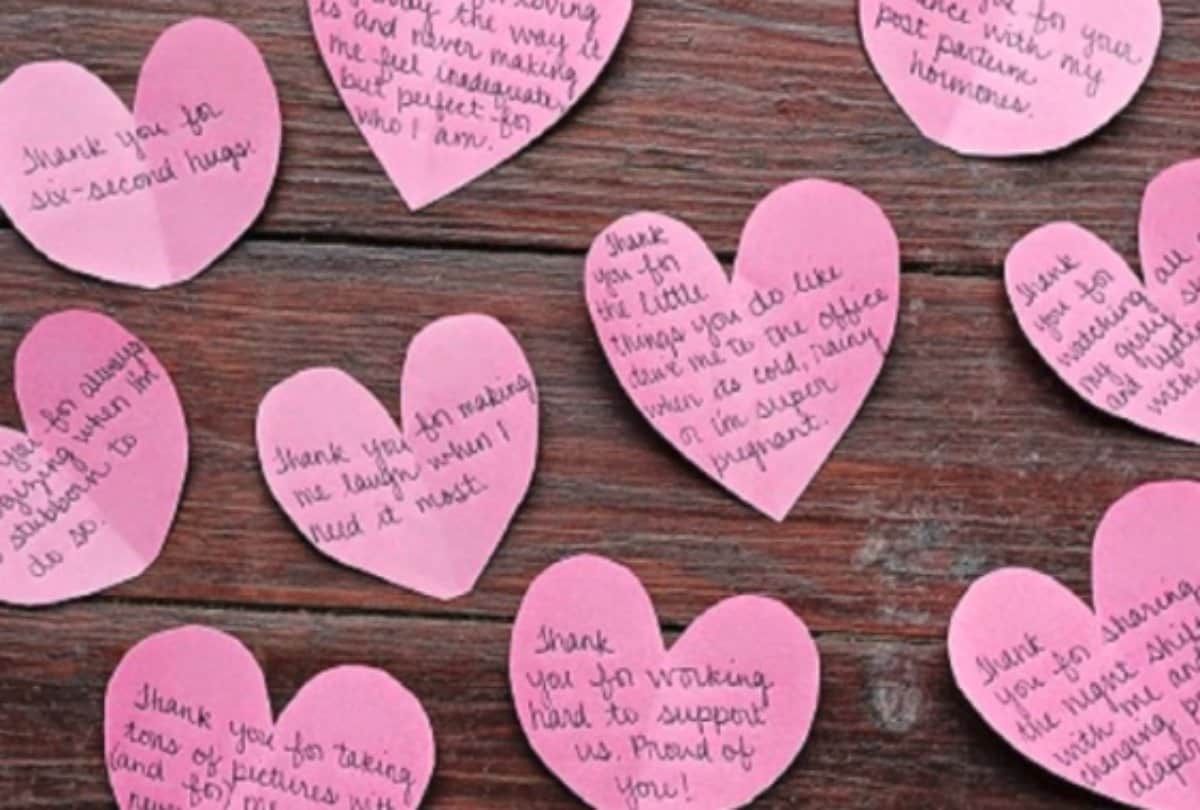 loving
the way it
is and never making
me feel inadequate,
but perfect for
who I am.
for your
with my
post partum
hormones.
Thank you for
six-second hugs.
Thank
you for
the little
things you do like
me to the office
when its cold, rainy
or i'm super
pregnant.
Thank
you for
watching all
my girly
and
with
you for always
when I'm
stubborn to
do so.
Thank you for making
me laugh when I
need it most.
Thank you for taking
tons of pictures with
(and for) me
Thank
you for working
hard to support
us. Proud of
you!
Thank
you for sharing
the night shift
with me and
changing